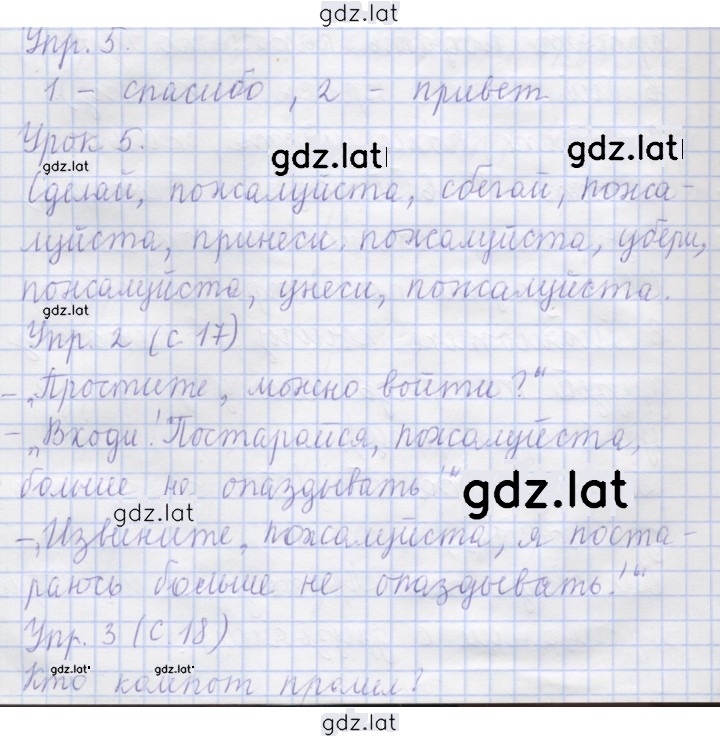 gdz.lat
Упр. 5.
1 - спасибо, 2 - привет.
Урок 5.
gdz.lat gdz.lat gdz.lat
Сделай, пожалуйста, сбегай, пожа-
луйста, принеси, пожалуйста, убери,
пожалуйста, унеси, пожалуйста.
gdz.lat
Упр. 2 (с 17)
- „Простите, можно войти?“
- „Входи! Постарайся, пожалуйста,
больше не опаздывать!“
gdz.lat gdz.lat
- „Извините, пожалуйста, я поста-
раюсь больше не опаздывать!“
Упр. 3 (с 18)
gdz.lat gdz.lat
Кто компот пролил?
gdz.lat